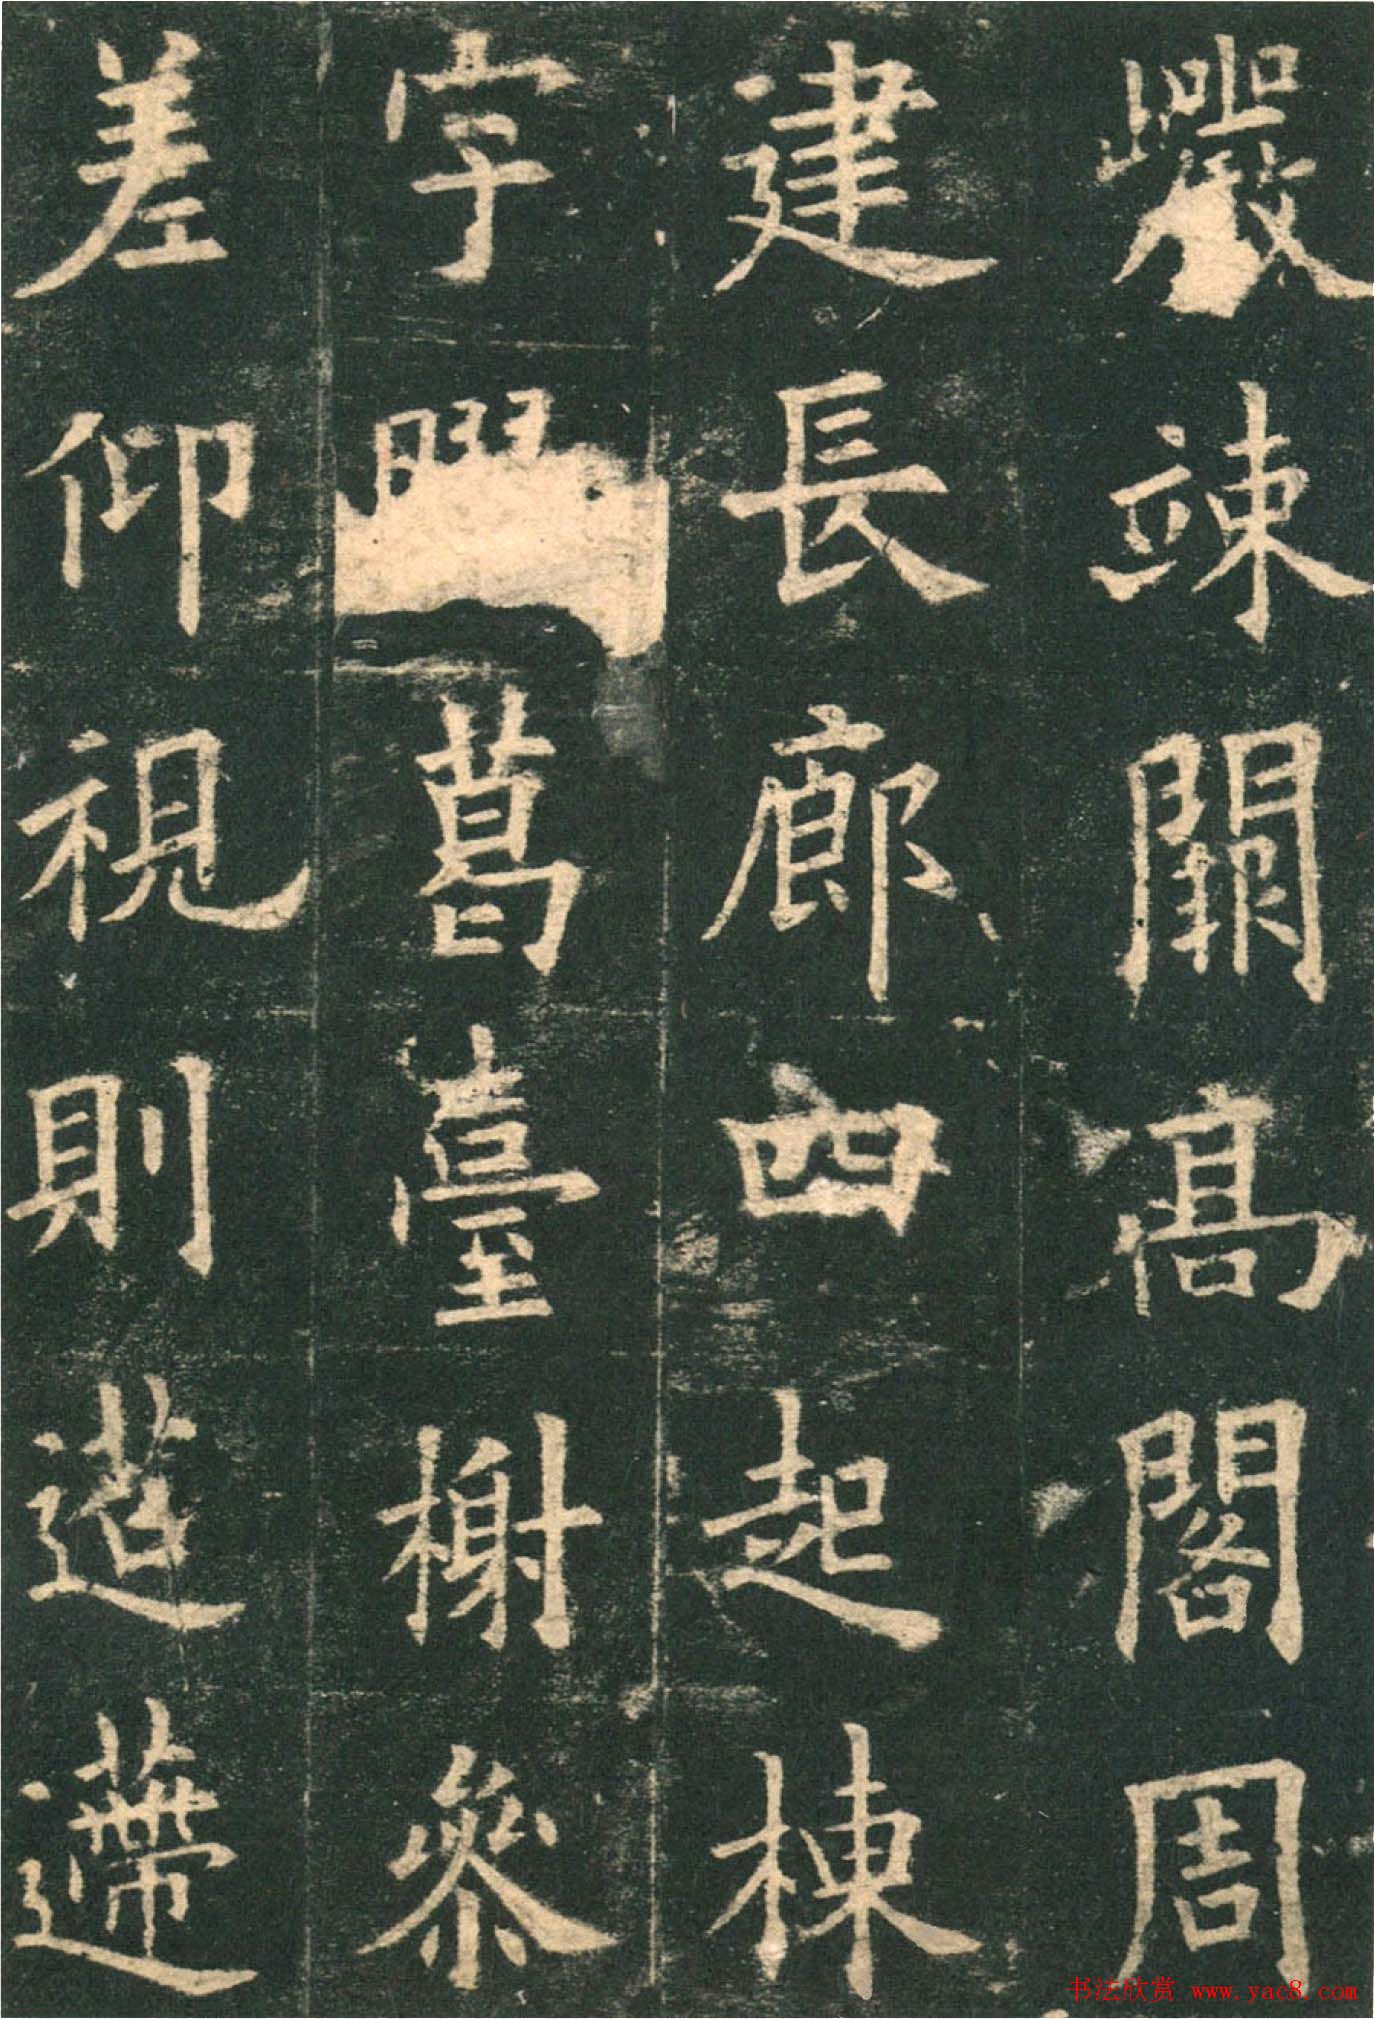 巖竦闕高閣周
建長廊四起棟
宇葛臺榭參
差仰視則迢遰
书法欣赏 www.yac8.com